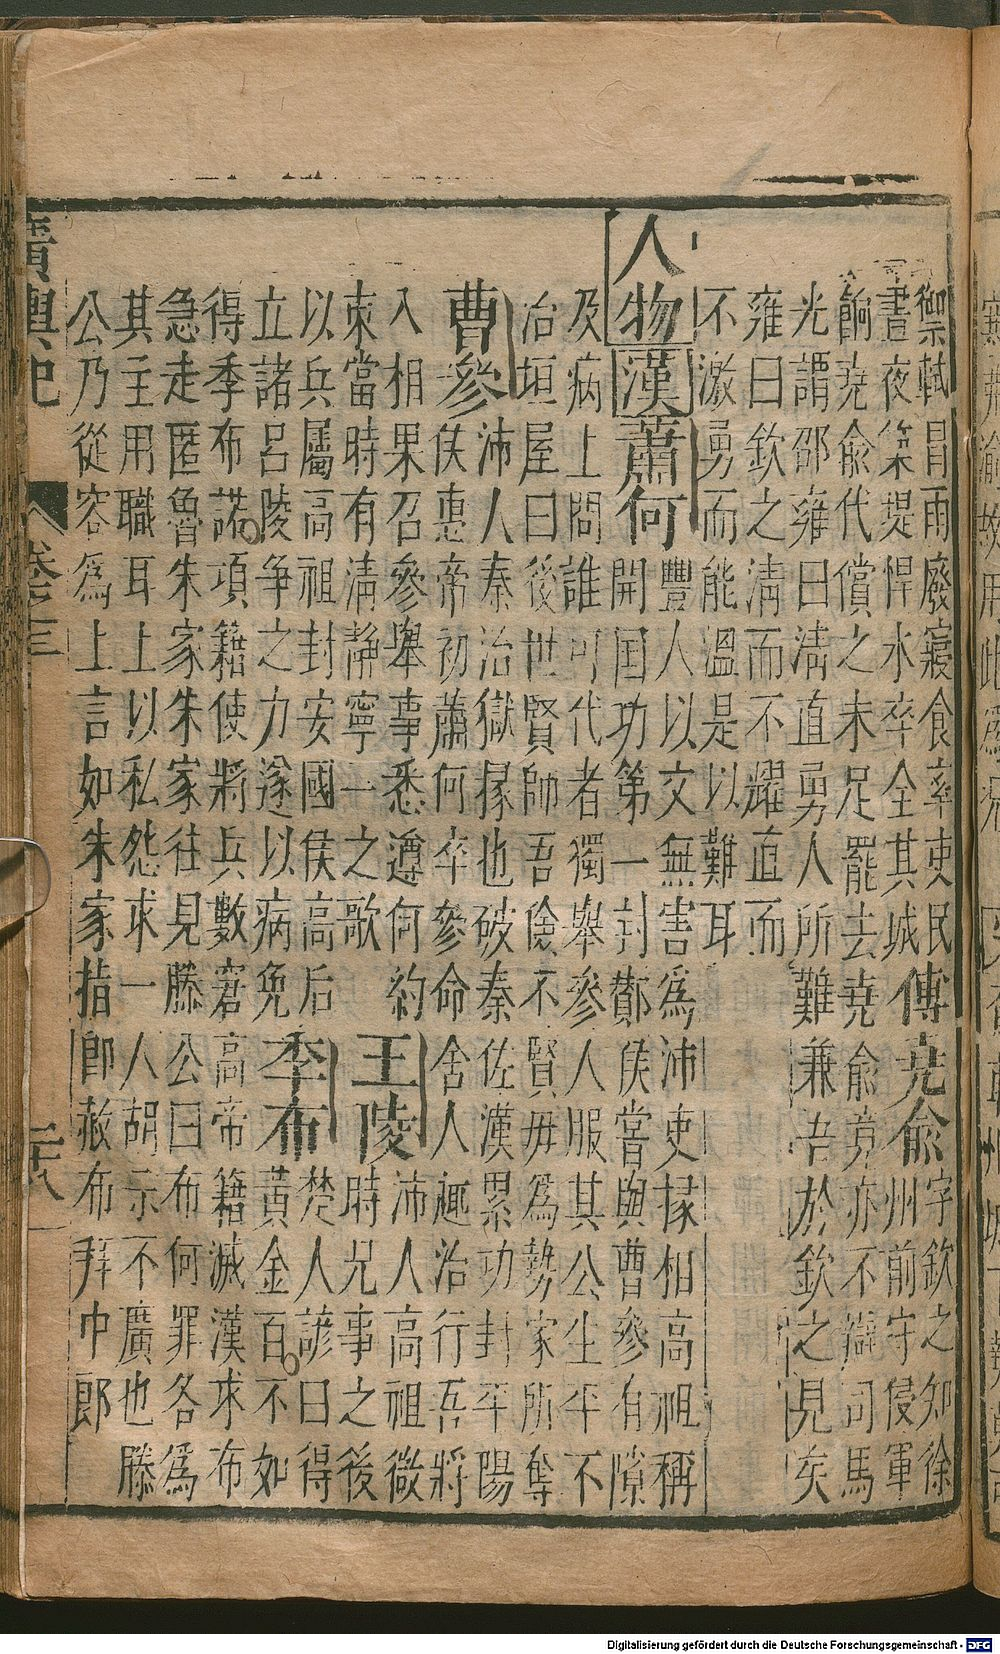 禦軾冒雨廢寢食率吏民
晝夜築堤悍水卒全其城
傅堯俞
字欽之知徐
州前守侵軍
餉堯俞代償之未足罷去堯俞竟亦不辯司馬
光謂邵雍曰清直勇人所難兼吾於欽之見矣
雍曰欽之清而不耀直而
不激勇而能溫是以難耳
人物 漢 蕭何
豐人以文無害爲沛吏掾相高祖稱
開国功第一封酇侯嘗與曹參有隙
及病上問誰可代者獨舉參人服其公生平不
治垣屋曰後世賢師吾儉不賢毋爲勢家所奪
曹參
沛人秦治獄掾也破秦佐漢累功封平陽
侯惠帝初蕭何卒參命舍人趣治行吾將
入相果召參舉事悉遵何約
束當時有清靜寧一之歌
王陵
沛人高祖微
時兄事之後
以兵屬高祖封安國侯高后
立諸呂陵爭之力遂以病免
季布
楚人諺曰得
黃金百不如
得季布諾項籍使將兵數窘高帝籍滅漢求布
急走匿魯朱家朱家往見滕公曰布何罪各爲
其主用職耳上以私怨求一人胡示不廣也滕
公乃從容爲上言如朱家指即赦布拜中郎
廣輿記 卷之三 二十八
Digitalisierung gefördert durch die Deutsche Forschungsgemeinschaft - DFG